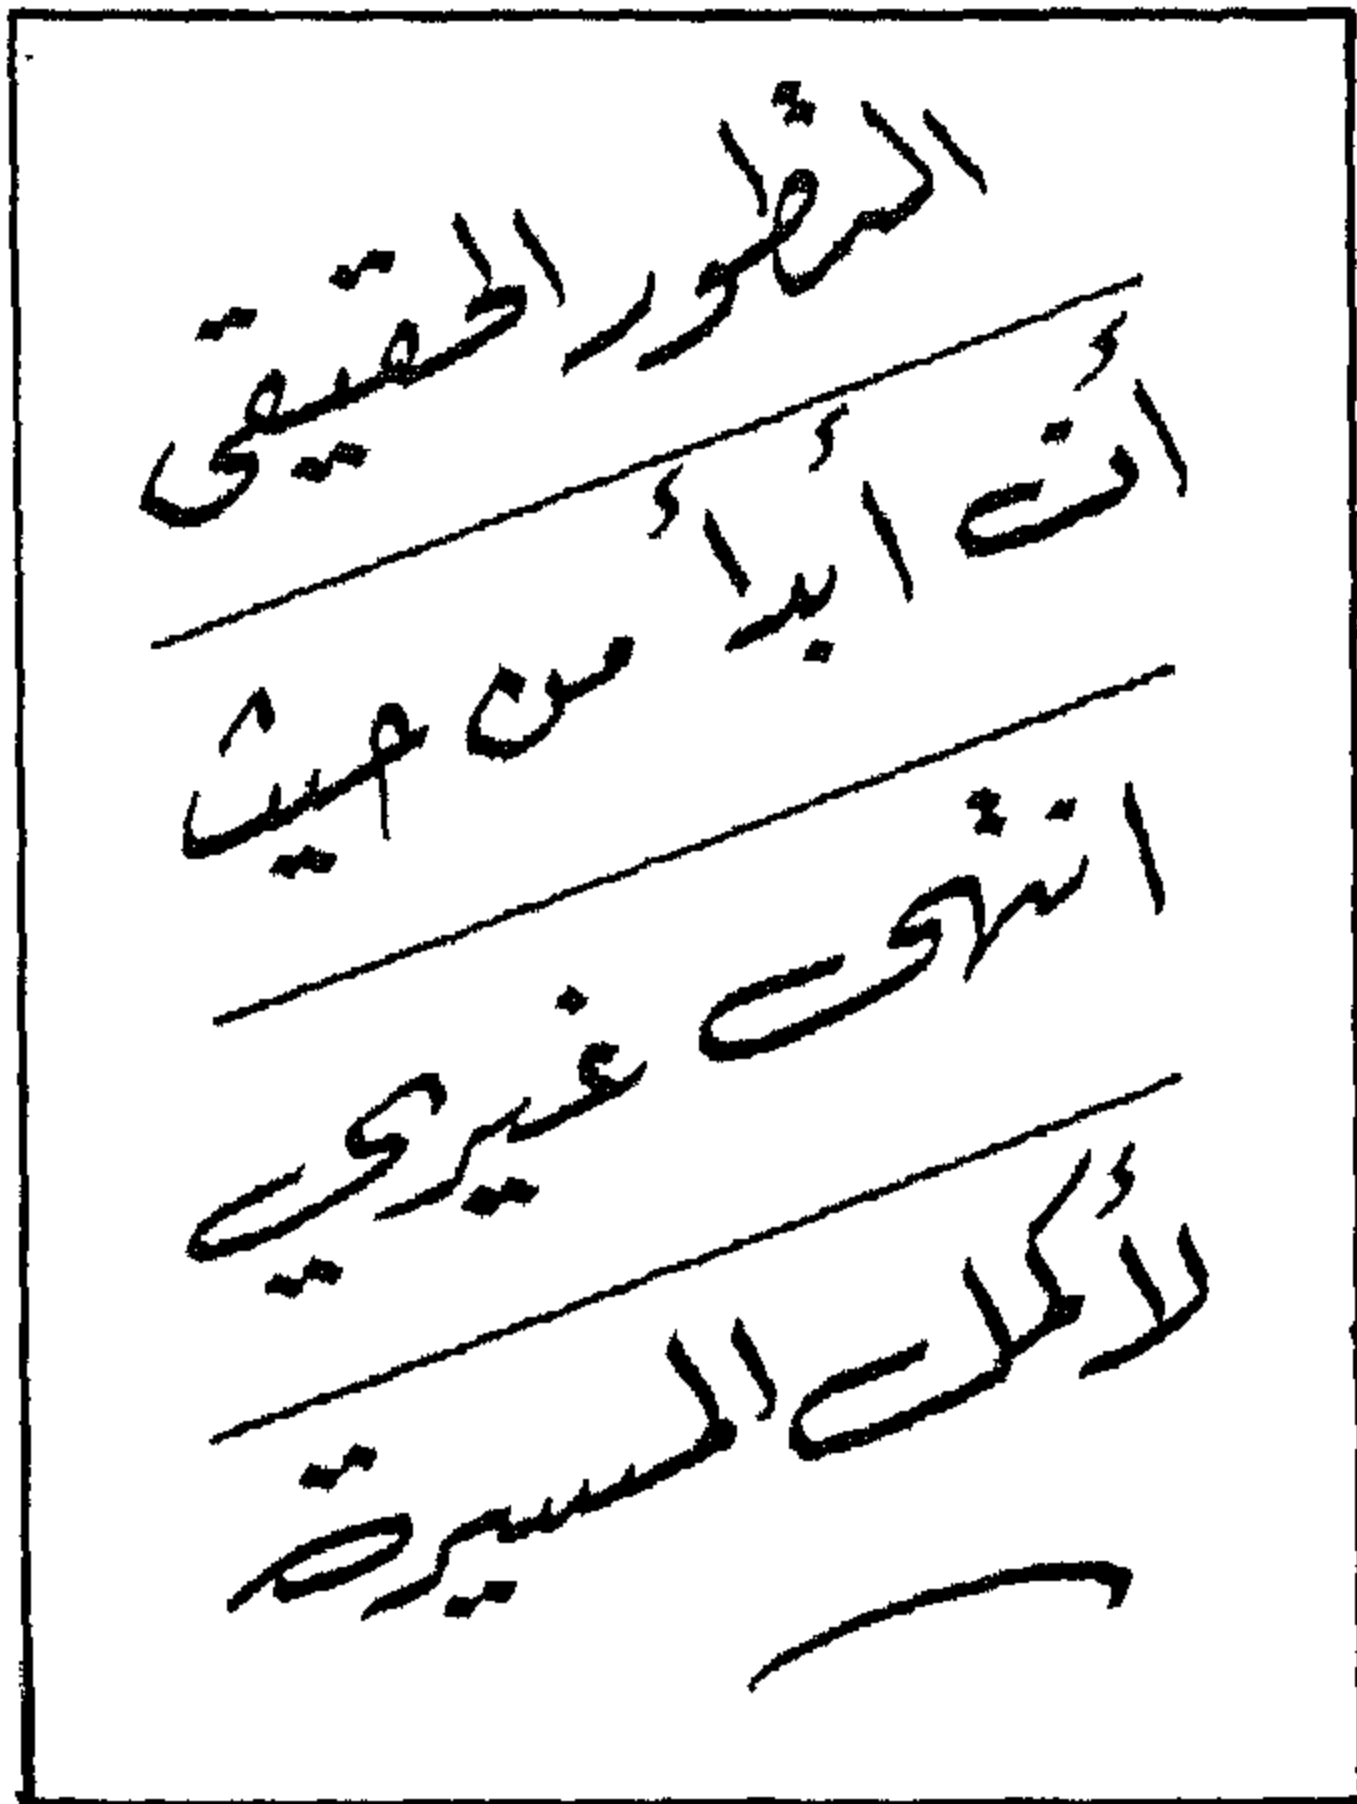 التطور الحقيقى
أنت أبدأ من حيث
انتهى غيري
لأكمل المسيرة